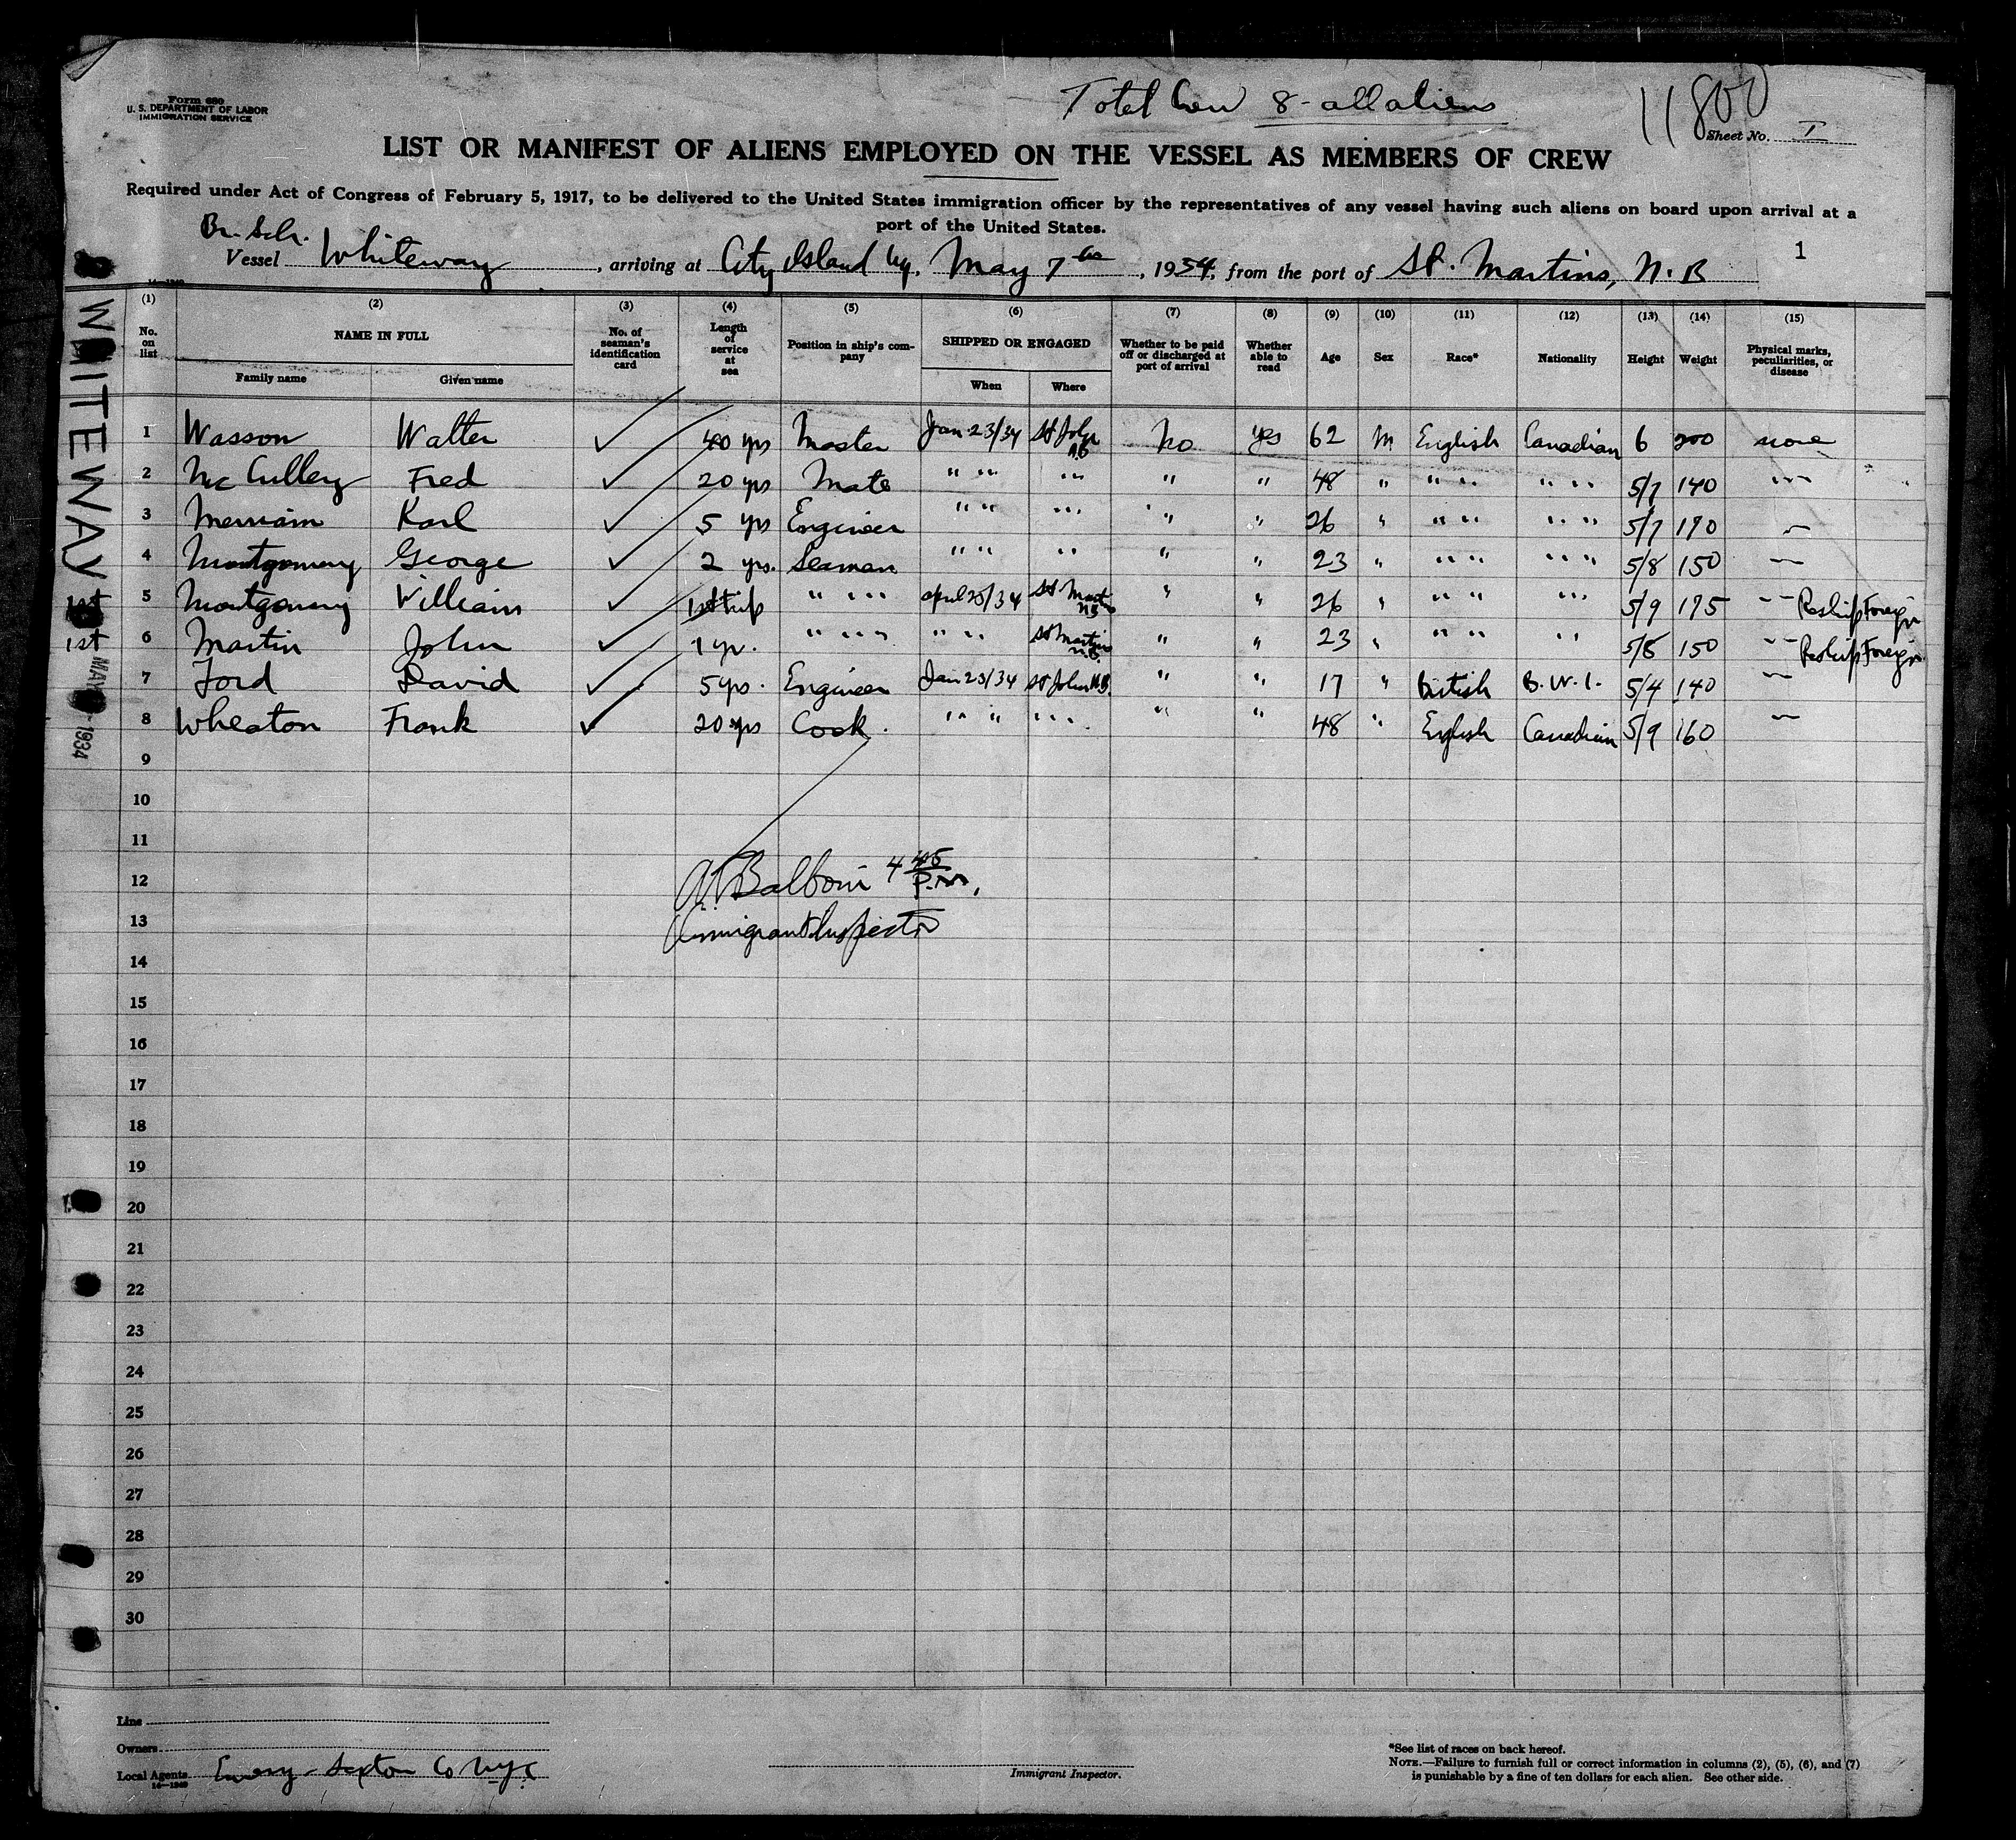 Form 680
U. S. DEPARTMENT OF LABOR
IMMIGRATION SERVICE
Total Crew 8 - all aliens
11800
Sheet No. I
LIST OR MANIFEST OF ALIENS EMPLOYED ON THE VESSEL AS MEMBERS OF CREW
Required under Act of Congress of February 5, 1917, to be delivered to the United States immigration officer by the representatives of any vessel having such aliens on board upon arrival at a
port of the United States.
Br. Sch.
Vessel Whiteway, arriving at City Island Ny. May 7th, 1934, from the port of St. Martins, N. B
1
WHITEWAY
1st
1st
MAY 1934
(1) (2) (3) (4) (5) (6) (7) (8) (9) (10) (11) (12) (13) (14) (15)
No. on list NAME IN FULL No. of seaman's identification card Length of service at sea Position in ship's company SHIPPED OR ENGAGED Whether to be paid off or discharged at port of arrival Whether able to read Age Sex Race* Nationality Height Weight Physical marks, peculiarities, or disease
Family name Given name When Where
1 Wasson Walter ✓ 40 yrs Master Jan 23/34 St John N.B No yes 62 M English Canadian 6 200 none
2 McCulley Fred ✓ 20 yrs Mate " " " " " " " " 48 " " " " " 5/7 140 " "
3 Merriam Karl ✓ 5 yrs Engineer " " " " " " " " 26 " " " " " 5/7 170 —
4 Montgomery George ✓ 2 yrs. Seaman " " " " " " " 23 " " " " " 5/8 150 —
5 Montgomery William ✓ 1st trip " " " April 25/34 St Martins NB " " 26 " " " " " 5/9 175 " Reship Foreign
6 Martin John ✓ 1 yr. " " " " " St Martins N.B. " " 23 " " " " " 5/8 150 " Reship Foreign
7 Ford David ✓ 5 yrs. Engineer Jan 23/34 St John N.B. " " 17 " British B. W. I. 5/4 140 —
8 Wheaton Frank ✓ 20 yrs Cook. " " " " " " " 48 " English Canadian 5/9 160 —
9
10
11
12 Balboni 4 45 P.M.
13 Immigrant Inspector
14
15
16
17
18
19
20
21
22
23
24
25
26
27
28
29
30
Line
Owners
Local Agents Emery - Sexton Co NYC
16—1240
Immigrant Inspector.
*See list of races on back hereof.
NOTE.—Failure to furnish full or correct information in columns (2), (5), (6), and (7)
is punishable by a fine of ten dollars for each alien. See other side.